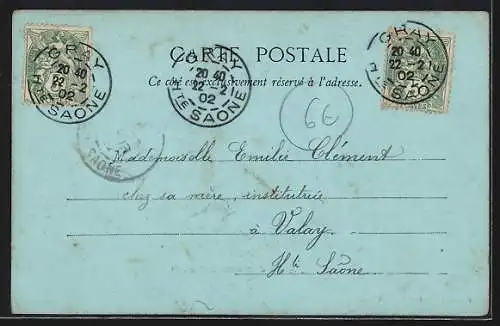 CARTE POSTALE
Ce côté est exclusivement réservé à l'adresse.
GRAY
20 40
22 -2
02
HTE SAÔNE
GRAY
20 40
22 -2
02
HTE SAÔNE
GRAY
20 40
22 -2
02
HTE SAÔNE
6E
SAÔNE
Mademoiselle Emilie Clément
chez sa mère, institutrice
à Valay.
Hte Saône